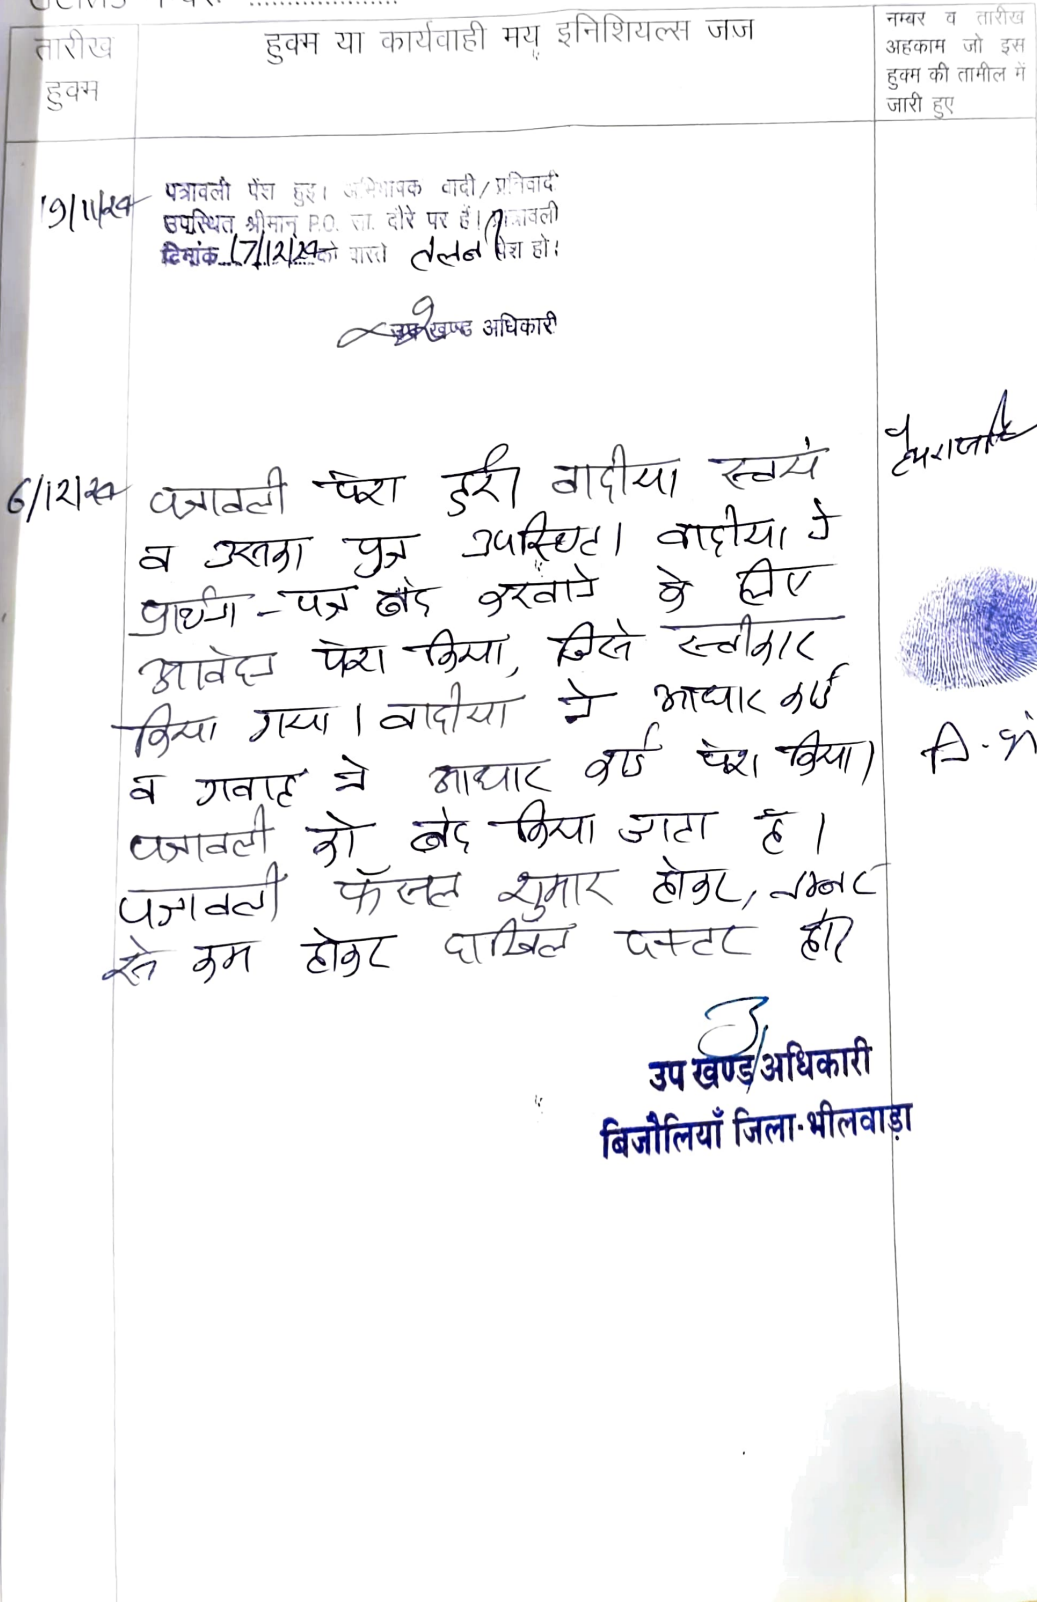 तारीख हुक्म
हुक्म या कार्यवाही मय इनिशियल्स जज
नम्बर व तारीख
अहकाम जो इस
हुक्म की तामील में
जारी हुए
19/11/24
पत्रावली पेश हुइ। अभिभाषक वादी/प्रतिवादी
उपस्थित श्रीमान् P.O. सा. दौरे पर हैं। पत्रावली
दिनांक 17/12/24 को वास्ते तलबी पेश हो।
उप खण्ड अधिकारी
6/12/24
पत्रावली पेश हुई। वादीया स्वयं
व उसका पुत्र उपस्थित। वादीया ने
प्रार्थना-पत्र बंद करवाने के लिए
आवेदन पेश किया, जिसे स्वीकार
किया गया। वादीया ने आधार कार्ड
व गवाह ने आधार कार्ड पेश किया।
पत्रावली को बंद किया जाता है।
पत्रावली फैसल शुमार होकर, नम्बर
से कम होकर दाखिल दफ्तर हो।
नि.अं
उप खण्ड अधिकारी
बिजौलियाँ जिला-भीलवाड़ा